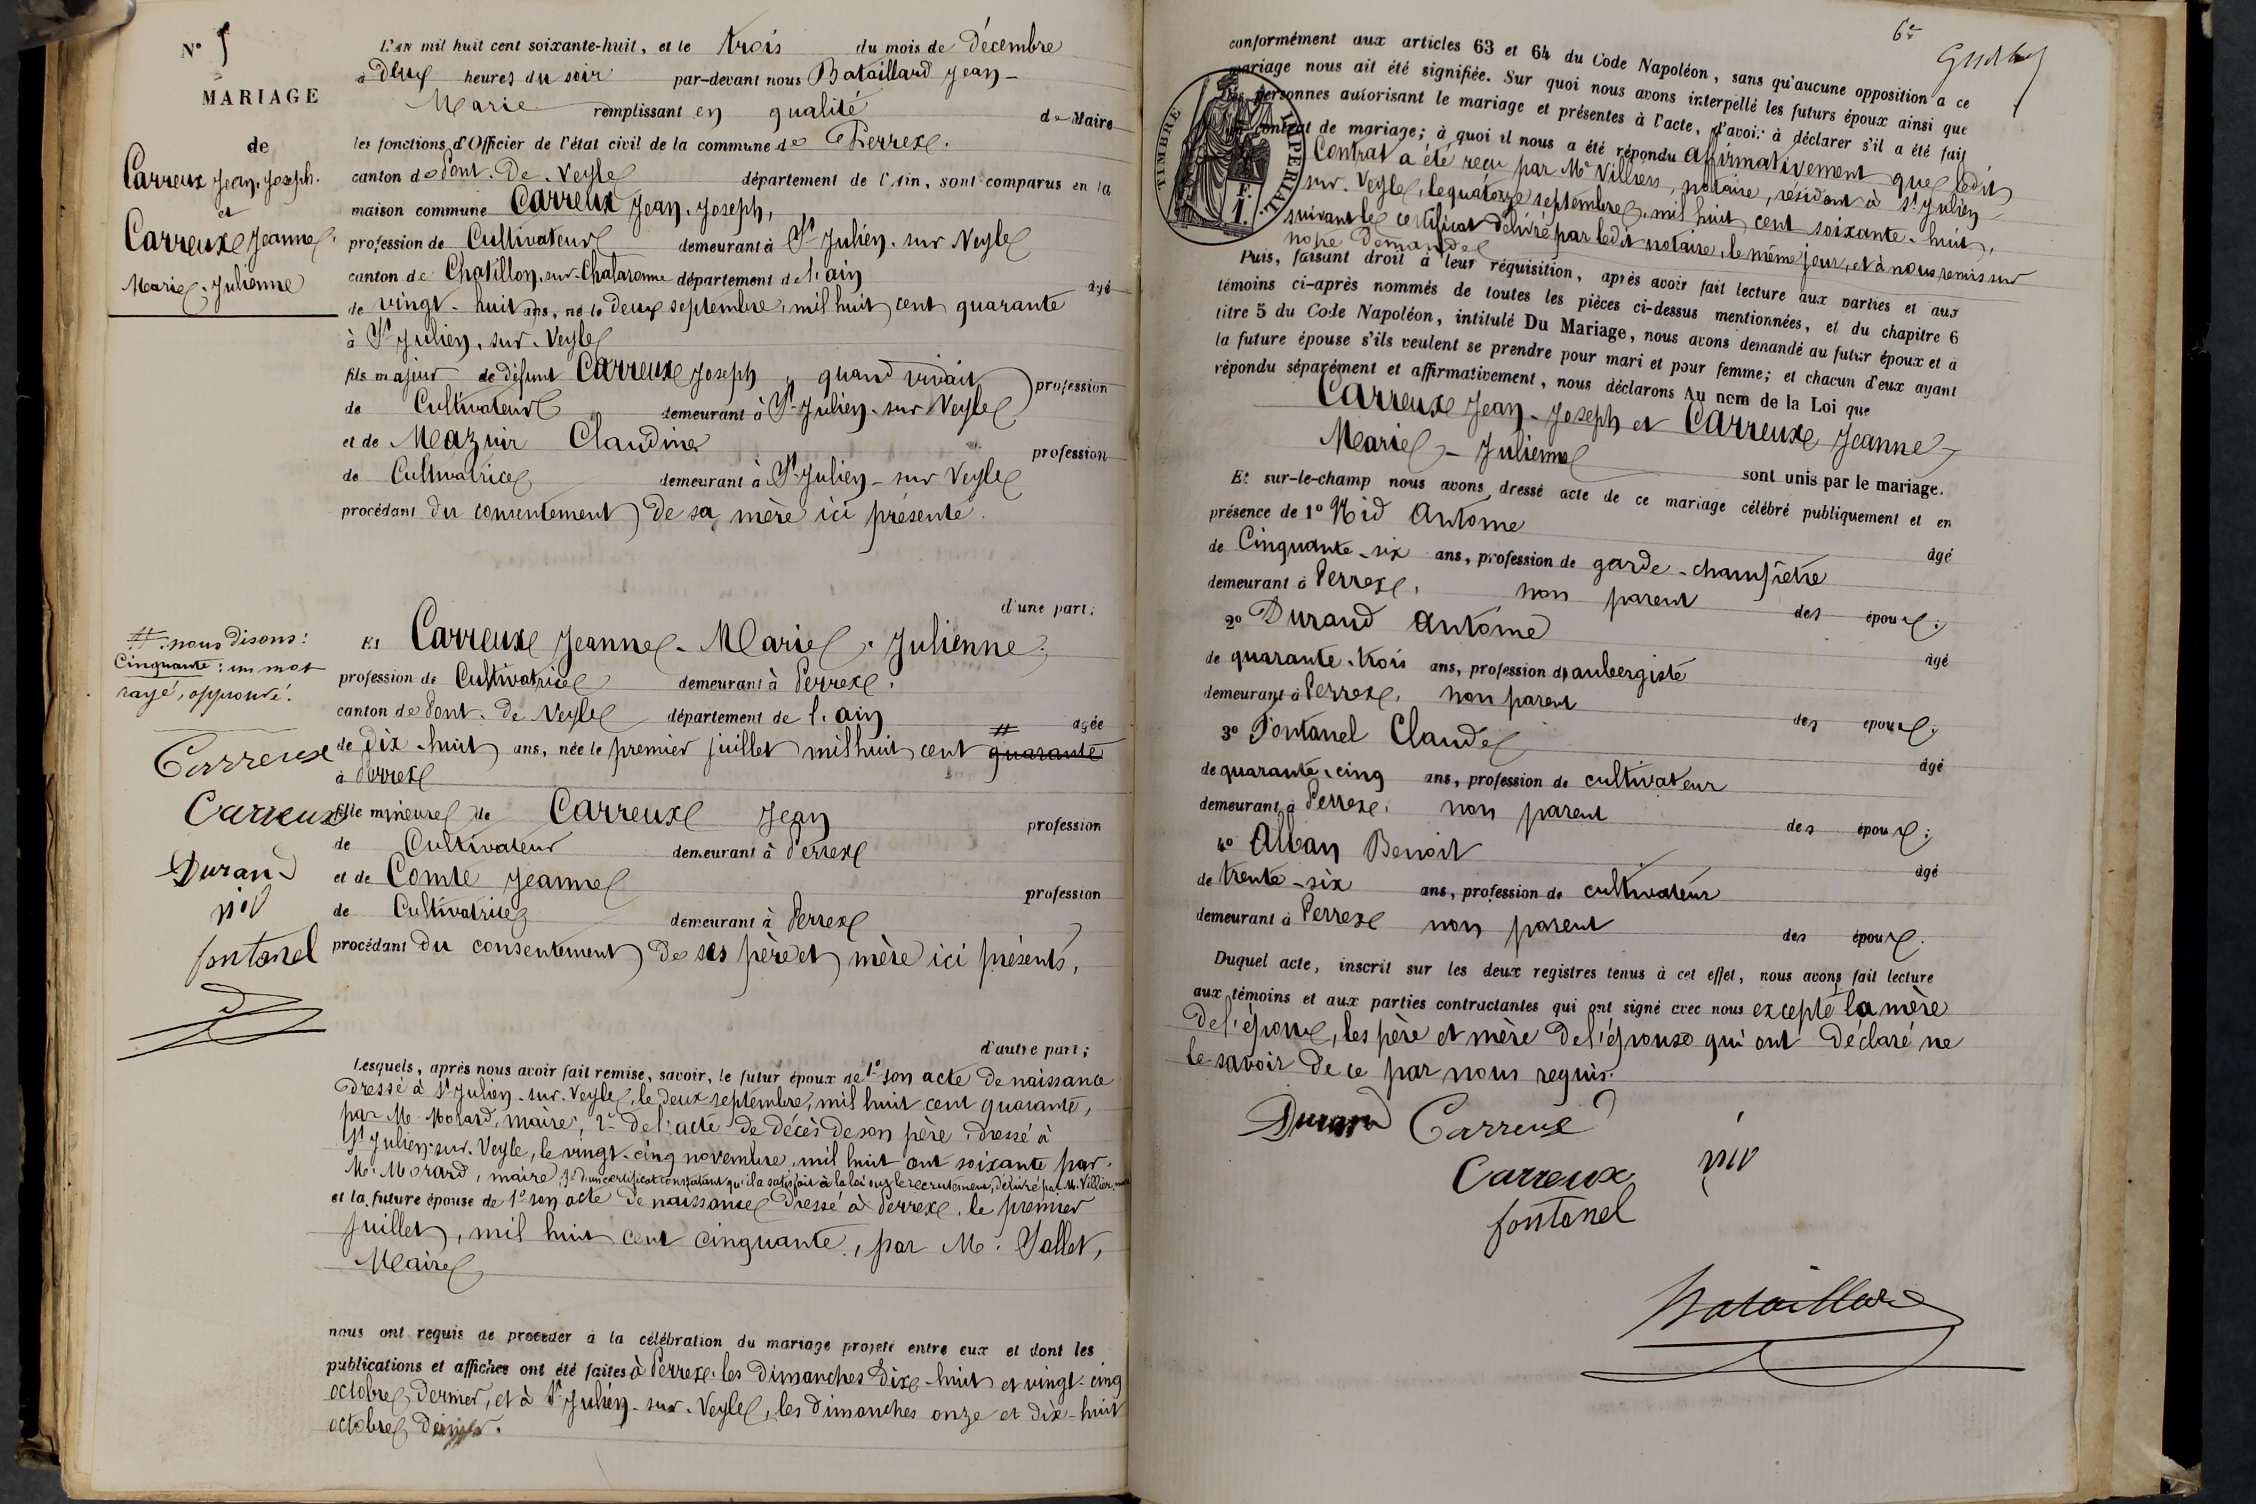 N° 5
MARIAGE
de
Carreux Jean-Joseph.
et
Carreux Jeanne
Marie-Julienne
L'AN mil huit cent soixante-huit, et le trois du mois de Décembre
à deux heures du soir par-devant nous Bataillard Jean-
Marie remplissant en qualité de Maire
les fonctions d'Officier de l'état civil de la commune de Perrex.
canton de Pont-De-Veyle département de l'Ain, sont comparus en la
maison commune Carreux Jean-Joseph,
profession de Cultivateur demeurant à St Julien-sur-Veyle
canton de Chatillon-sur-Chalaronne département de l'ain âgé
de vingt-huit ans, né le deux septembre, mil huit cent quarante
à St Julien-sur-Veyle
fils majeur de défunt Carreux Joseph, quand vivait profession
de Cultivateur demeurant à St Julien-sur-Veyle
et de Mazuir Claudine profession
de Cultivatrice demeurant à St Julien-sur Veyle
procédant du consentement de sa mère ici présente.
d'une part;
Et Carreux Jeanne-Marie-Julienne,
profession de Cultivatrice demeurant à Perrex.
canton de Pont-de-Veyle département de l'ain # âgée
de Dix-huit ans, née le premier juillet mil huit cent quarante
à Perrex
fille mineure de Carreux Jean profession
de Cultivateur demeurant à Perrex
et de Comte Jeanne profession
de Cultivatrice demeurant à Perrex
procédant du consentement de ses père et mère ici présents,
d'autre part;
# nous disons:
Cinquante: un mot
rayé, approuvé.
Carreux
Carreux
Durand
niD
fontanel
Lesquels, après nous avoir fait remise, savoir, le futur époux de 1° son acte de naissance
dressé à St Julien-sur-Veyle, le deux septembre, mil huit cent quarante,
par Mr. Morard, maire, 2° de l'acte de décès de son père, dressé à
St Julien-sur-Veyle, le vingt-cinq novembre, mil huit cent soixante par
Mr. Morard, maire, 3° d'un certificat constatant qu'il a satisfait à la loi sur le recrutement, délivré par M. Villier,
et la future épouse de 1° son acte de naissance dressé à Perrex, le premier
juillet, mil huit cent cinquante, par Mr. Sallet,
Maire
nous ont requis de procéder à la célébration du mariage projeté entre eux et dont les
publications et affiches ont été faites à Perrex, les dimanches dix-huit et vingt-cinq
octobre dernier, et à St Julien-sur-Veyle, les dimanches onze et dix-huit
octobre dernier.
6e
conformément aux articles 63 et 64 du Code Napoléon, sans qu'aucune opposition à ce
mariage nous ait été signifiée. Sur quoi nous avons interpellé les futurs époux ainsi que
les personnes autorisant le mariage et présentes à l'acte, d'avoir à déclarer s'il a été fait
un contrat de mariage; à quoi il nous a été répondu affirmativement que ledit
TIMBRE IMPÉRIAL
1 F.
Contrat a été reçu par Mr Villiers, notaire, résidant à St Julien
sur-Veyle, le quatorze septembre, mil huit cent soixante-huit,
suivant le certificat délivré par ledit notaire, le même jour, et à nous remis sur
notre demande
Puis, faisant droit à leur réquisition, après avoir fait lecture aux parties et aux
témoins ci-après nommés de toutes les pièces ci-dessus mentionnées, et du chapitre 6
titre 5 du Code Napoléon, intitulé Du Mariage, nous avons demandé au futur époux et à
la future épouse s'ils veulent se prendre pour mari et pour femme; et chacun d'eux ayant
répondu séparément et affirmativement, nous déclarons au nom de la Loi que
Carreux Jean-Joseph et Carreux Jeanne-
Marie-Julienne sont unis par le mariage.
Et sur-le-champ nous avons dressé acte de ce mariage célébré publiquement et en
présence de 1° Nid Antoine âgé
de Cinquante-six ans, profession de garde-champêtre
demeurant à Perrex, non parent des époux;
2° Durand Antoine âgé
de quarante-trois ans, profession d'aubergiste
demeurant à Perrex, non parent des époux;
3° Fontanel Claude âgé
de quarante-cinq ans, profession de cultivateur
demeurant à Perrex, non parent des époux;
4° Alban Benoit âgé
de trente-six ans, profession de cultivateur
demeurant à Perrex non parent des époux.
Duquel acte, inscrit sur les deux registres tenus à cet effet, nous avons fait lecture
aux témoins et aux parties contractantes qui ont signé avec nous excepté la mère
de l'époux, les père et mère de l'épouse qui ont déclaré ne
le savoir de ce par nous requis.
Durand Carreux
Carreux niD
fontanel
Bataillard